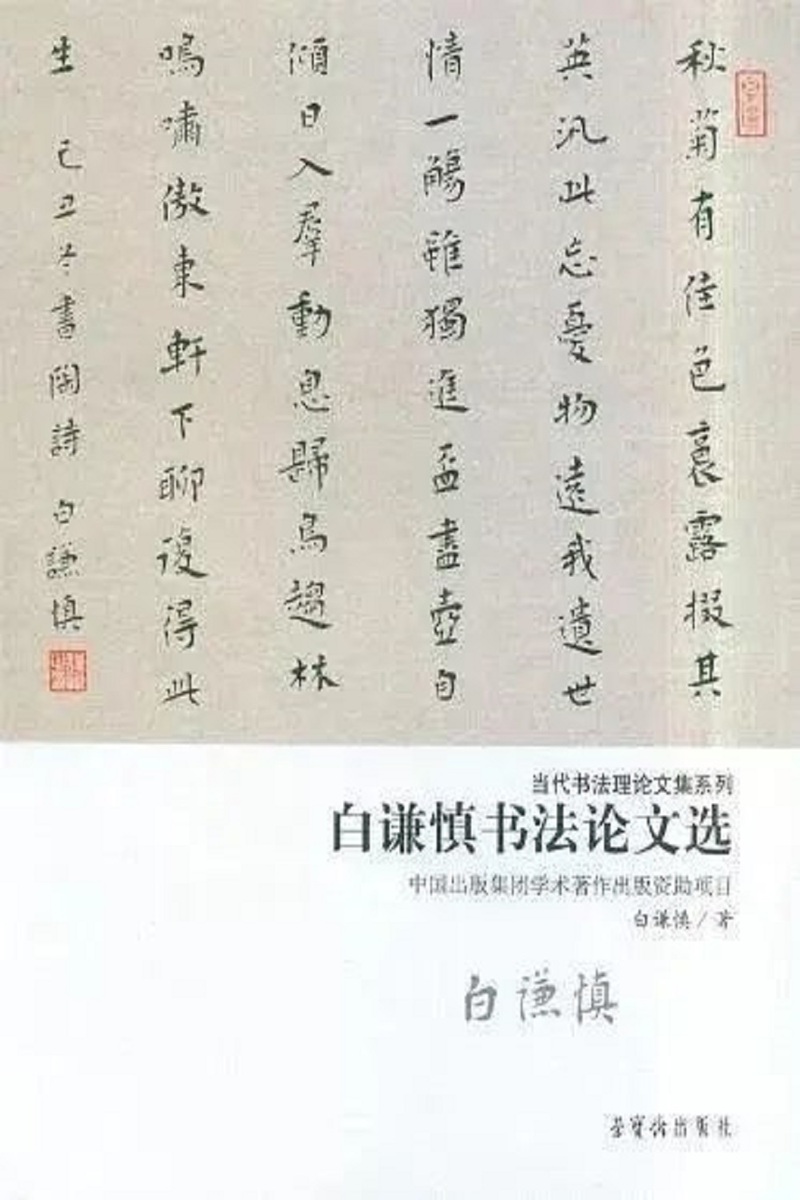 秋菊有佳色裛露掇其
英汎此忘憂物遠我遺世
情一觴雖獨進盃盡壺自
傾日入羣動息歸鳥趨林
鳴嘯傲東軒下聊復得此
生 己丑冬書陶詩 白謙慎
当代书法理论文集系列
白谦慎书法论文选
中国出版集团学术著作出版资助项目
白谦慎/著
白谦慎
荣宝斋出版社